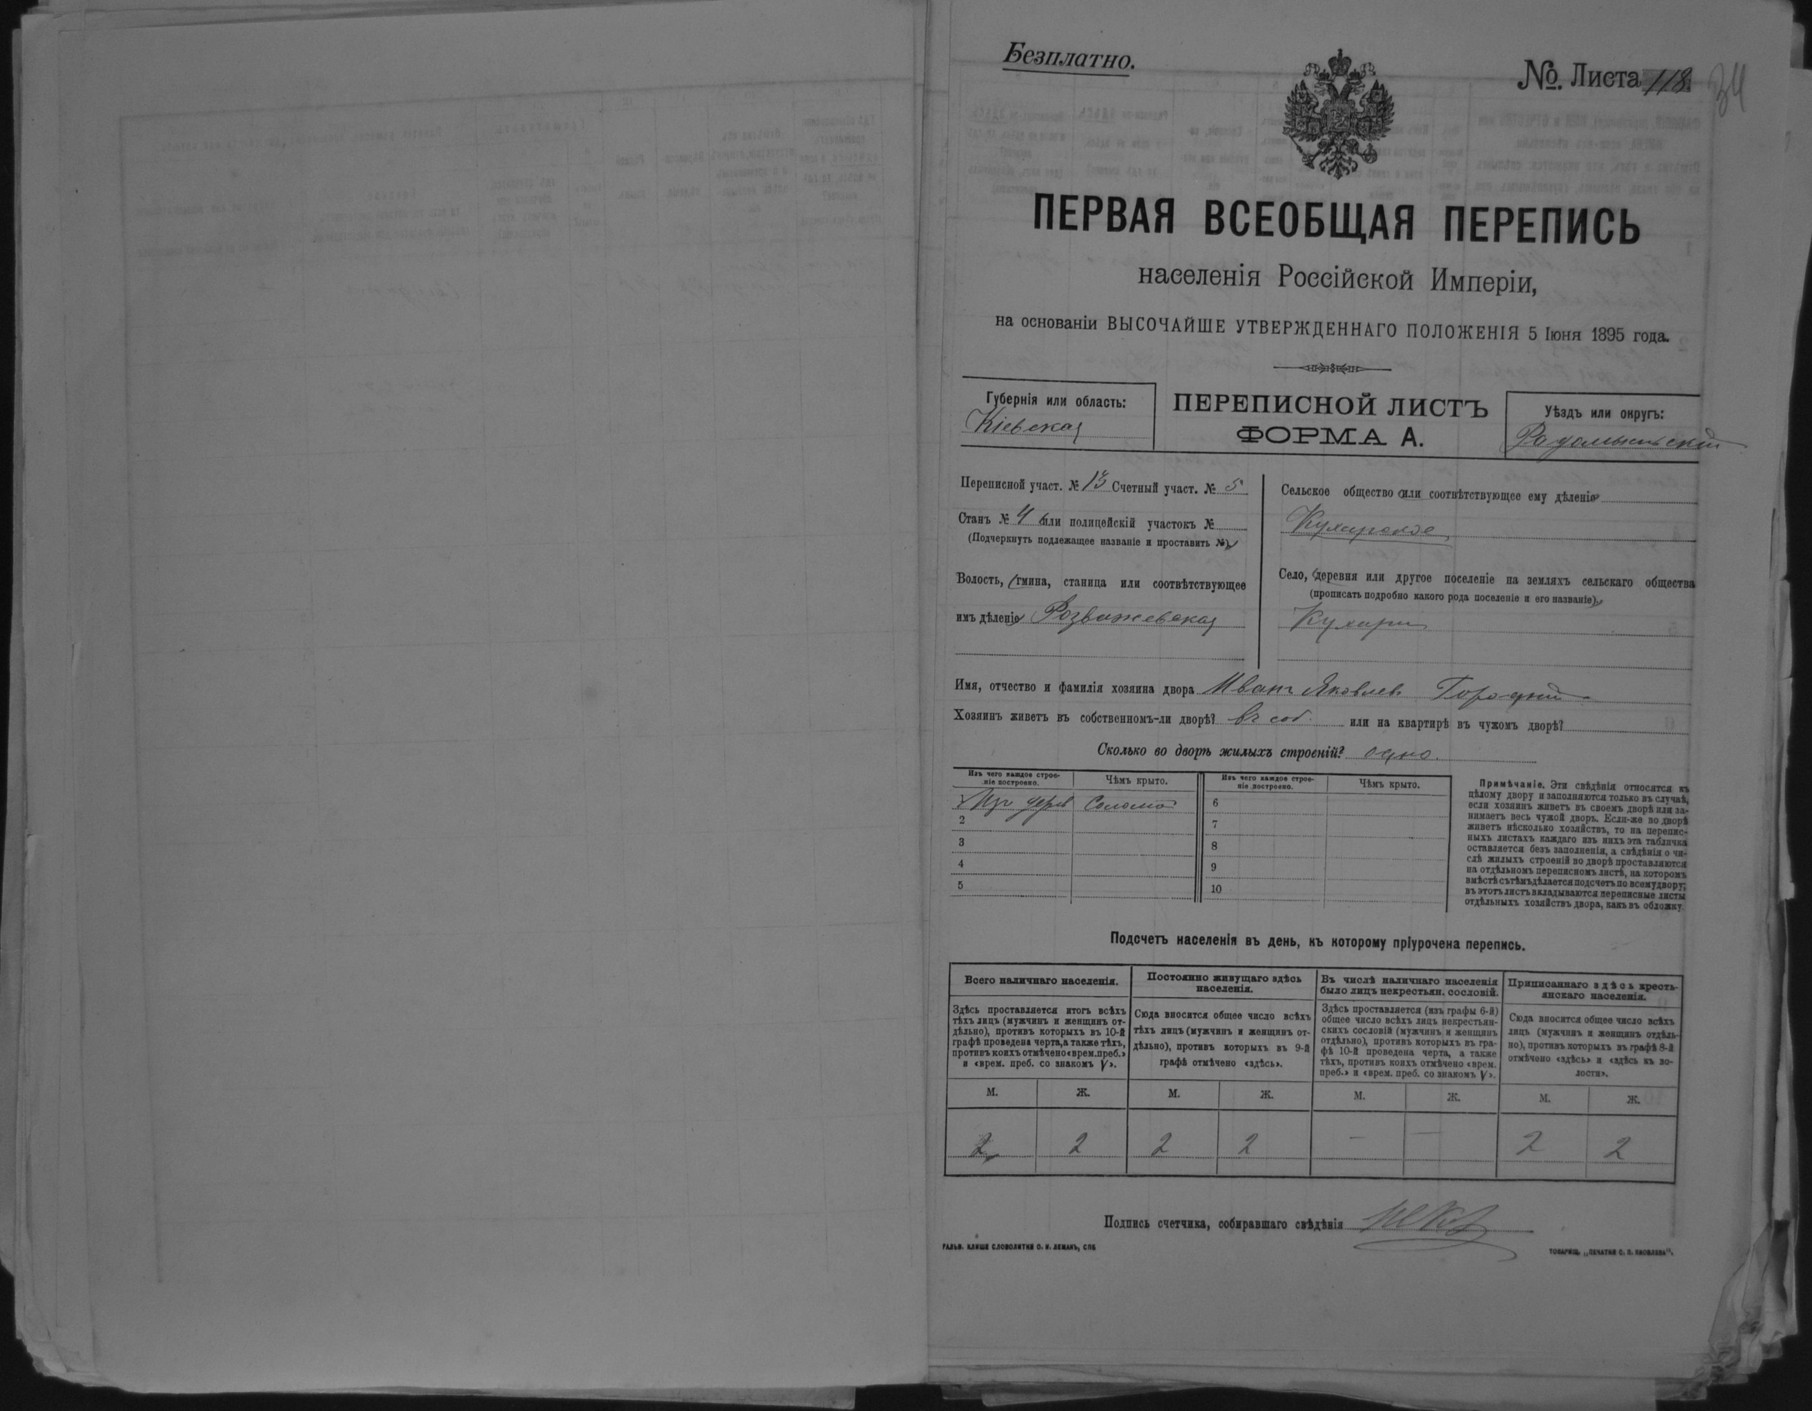 Безплатно.
№. Листа 118
34
ПЕРВАЯ ВСЕОБЩАЯ ПЕРЕПИСЬ
населенія Россійской Имперіи,
на основаніи ВЫСОЧАЙШЕ УТВЕРЖДЕННАГО ПОЛОЖЕНІЯ 5 Іюня 1895 года.
Губернія или область:
Кіевская
ПЕРЕПИСНОЙ ЛИСТЪ
ФОРМА А.
Уѣздъ или округъ:
Радомысльскій
Переписной участ. № 13 Счетный участ. № 5
Станъ № 4 или полицейскій участокъ №
(Подчеркнуть подлежащее названіе и проставить №)
Волость, (гмина, станица или соотвѣтствующее
имъ дѣленіе) Розважевская
Сельское общество (или соотвѣтствующее ему дѣленіе)
Кухарское
Село, (деревня или другое поселеніе на земляхъ сельскаго общества
(прописать подробно какого рода поселеніе и его названіе)
Кухари
Имя, отчество и фамилія хозяина двора Иванъ Яковлев. Городній
Хозяинъ живетъ въ собственномъ-ли дворѣ? въ соб. или на квартирѣ въ чужомъ дворѣ?
Сколько во дворѣ жилыхъ строеній? одно.
Изъ чего каждое строеніе построено. Чѣмъ крыто. Изъ чего каждое строеніе построено. Чѣмъ крыто.
Изъ дерев Солома 6
2 7
3 8
4 9
5 10
Примѣчаніе. Эти свѣдѣнія относятся къ
цѣлому двору и заполняются только въ случаѣ,
если хозяинъ живетъ въ своемъ дворѣ или за-
нимаетъ весь чужой дворъ. Если-же во дворѣ
живетъ нѣсколько хозяйствъ, то на перепис-
ныхъ листахъ каждаго изъ нихъ эта табличка
оставляется безъ заполненія, а свѣдѣнія о чи-
слѣ жилыхъ строеній во дворѣ проставляются
на отдѣльномъ переписномъ листѣ, на которомъ
вмѣстѣ съ тѣмъ дѣлается подсчетъ по всему двору;
въ этотъ листъ вкладываются переписные листы
отдѣльныхъ хозяйствъ двора, какъ въ обложку.
Подсчетъ населенія въ день, къ которому пріурочена перепись.
Всего наличнаго населенія.
Здѣсь проставляется итогъ всѣхъ
тѣхъ лицъ (мужчинъ и женщинъ от-
дѣльно), противъ которыхъ въ 10-й
графѣ проведена черта, а также тѣхъ,
противъ коихъ отмѣчено «врем. преб.»
и «врем. преб. со знакомъ V».
Постоянно живущаго здѣсь
населенія.
Сюда вносится общее число всѣхъ
тѣхъ лицъ (мужчинъ и женщинъ от-
дѣльно), противъ которыхъ въ 9-й
графѣ отмѣчено «здѣсь».
Въ числѣ наличнаго населенія
было лицъ некрестьян. сословій.
Здѣсь проставляется (изъ графы 6-й)
общее число всѣхъ лицъ некрестьян-
скихъ сословій (мужчинъ и женщинъ
отдѣльно), противъ которыхъ въ гра-
фѣ 10-й проведена черта, а также
тѣхъ, противъ коихъ отмѣчено «врем.
преб.» и «врем. преб. со знакомъ V».
Приписаннаго здѣсь кресть-
янскаго населенія.
Сюда вносится общее число всѣхъ
лицъ (мужчинъ и женщинъ отдѣль-
но), противъ которыхъ въ графѣ 8-й
отмѣчено «здѣсь» и «здѣсь въ во-
лости».
М. Ж. М. Ж. М. Ж. М. Ж.
2 2 2 2 — — 2 2
Подпись счетчика, собиравшаго свѣдѣнія
ГАЛЬВ. КЛИШЕ СЛОВОЛИТНИ О. И. ЛЕМАНЪ, СПБ
ТОВАРИЩ. „ПЕЧАТНЯ С. П. ЯКОВЛЕВА".